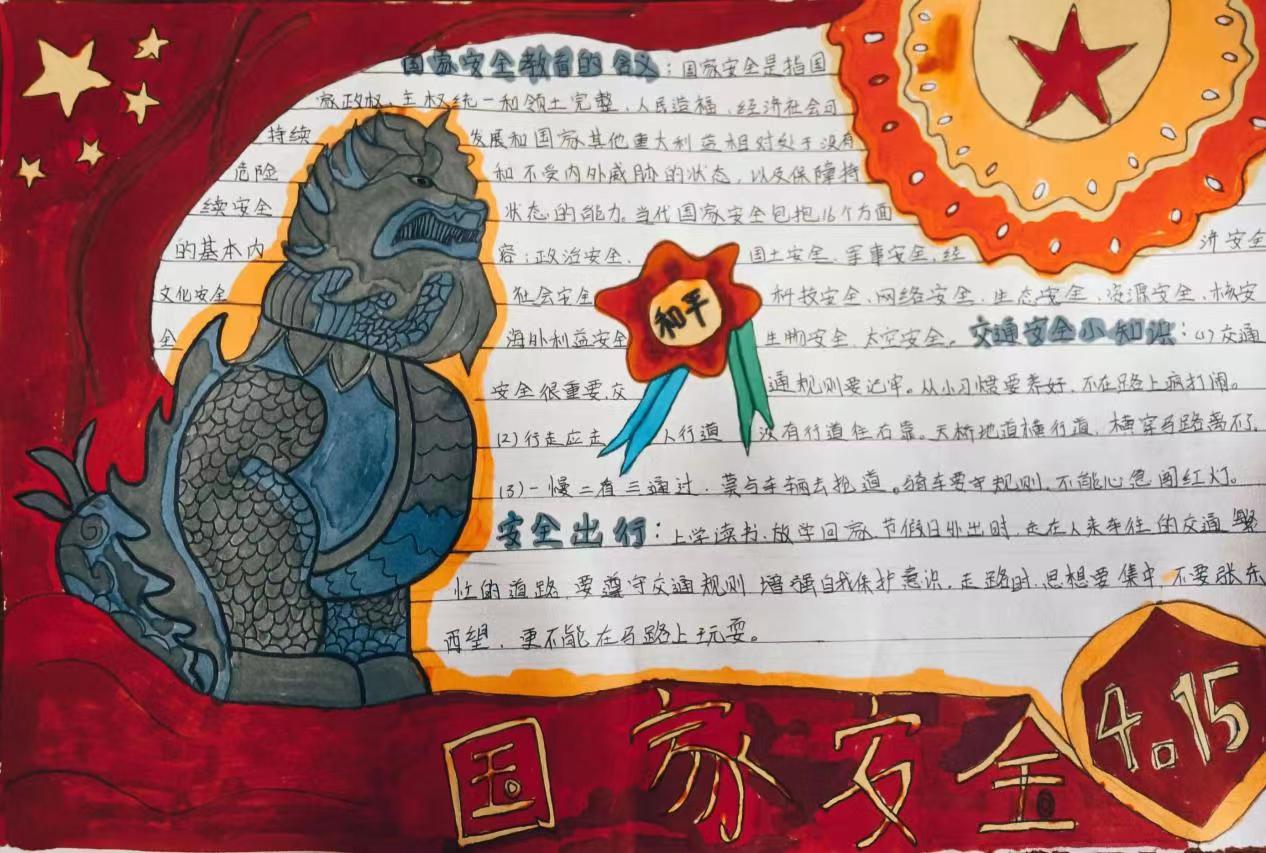 国家安全教育的含义：国家安全是指国
家政权、主权统一和领土完整、人民造福、经济社会可
持续 发展和国家其他重大利益相对处于没有
危险 和不受内外威胁的状态，以及保障持
续安全 状态的能力。当代国家安全包抱16个方面
的基本内 容：政治安全、国土安全、军事安全、经 济安全
文化安全 社会安全 科技安全、网络安全、生态安全、资源安全、核安
全 海外利益安全 生物安全、太空安全。交通安全小知识：(1)交通
安全很重要，交 通规则要记牢。从小习惯要养好，不在路上疯打闹。
(2)行走应走 人行道 没有行道往右靠。天桥地道横行道，横穿马路离不了
(3)一慢二看三通过，莫与车辆去抢道。骑车要守规则，不能心急闯红灯。
安全出行：上学读书、放学回家、节假日外出时，走在人来车往的交通繁
忙的道路，要遵守交通规则，增强自我保护意识，走路时，思想要集中，不要张东
西望，更不能在马路上玩耍。
和平
国家安全
4.15